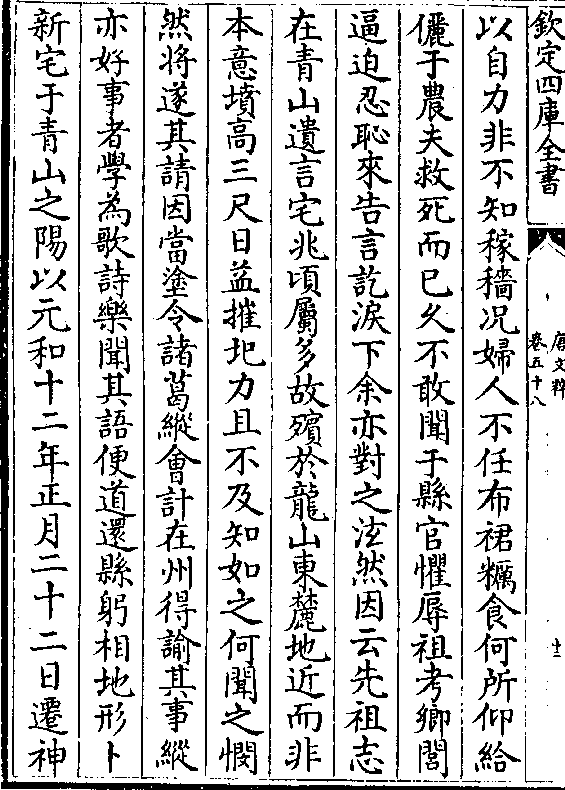 欽定四庫全書
唐文粹
卷五十八
十三
以自力非不知稼穡况婦人不任布裙糲食何所仰給
儷于農夫救死而已久不敢聞于縣官懼辱祖考鄉閭
逼迫忍恥來告言訖淚下余亦對之泫然因云先祖志
在青山遺言宅兆頃屬多故殯於龍山東麓地近而非
本意墳高三尺日益摧圮力且不及知如之何聞之憫
然将遂其請因當塗令諸葛縱會計在州得諭其事縱
亦好事者學為歌詩樂聞其語便道還縣躬相地形卜
新宅于青山之陽以元和十二年正月二十二日遷神